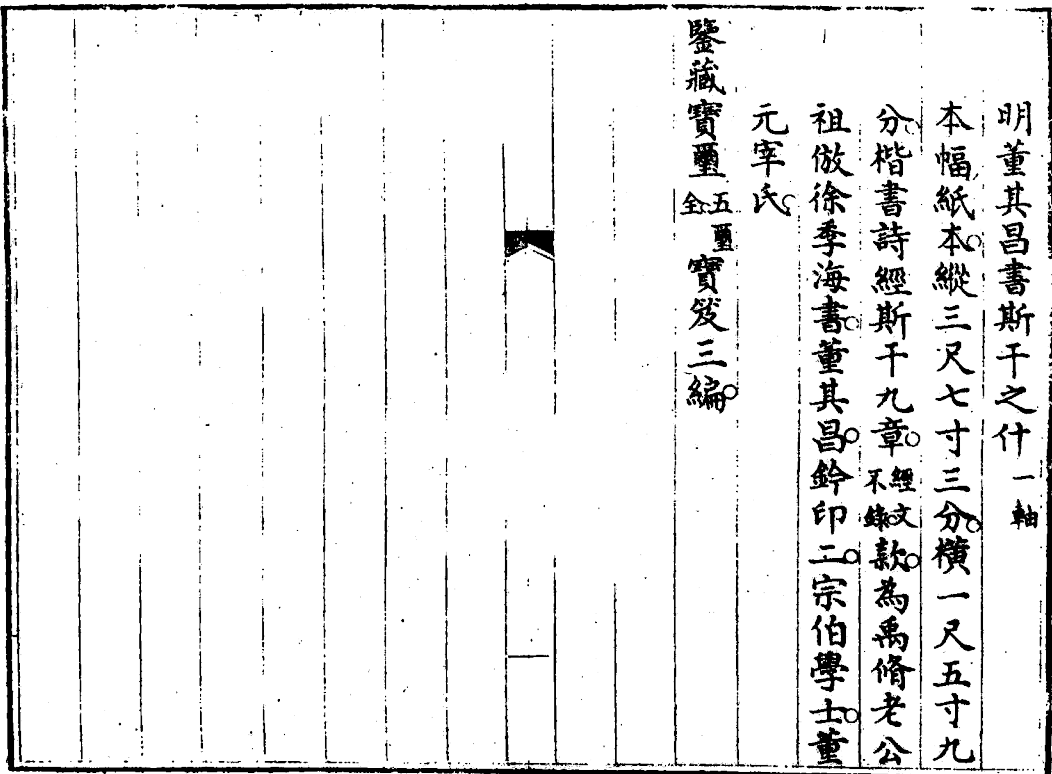 明董其昌書斯干之什一軸
本幅紙本。縱三尺七寸三分。橫一尺五寸九
分。楷書詩經斯干九章。經文不錄。款。為禹脩老公
祖倣徐季海書。董其昌。鈐印二。宗伯學士。董
元宰氏。
鑒藏寶璽五璽全。寶笈三編。